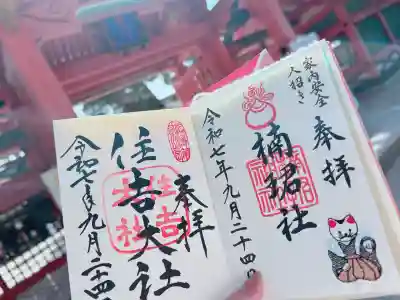 家内安全
大好き
奉拝
楠珺社
令和七年九月二十四日
奉拝
住吉大社
住吉
大社
令和七年九月二十四